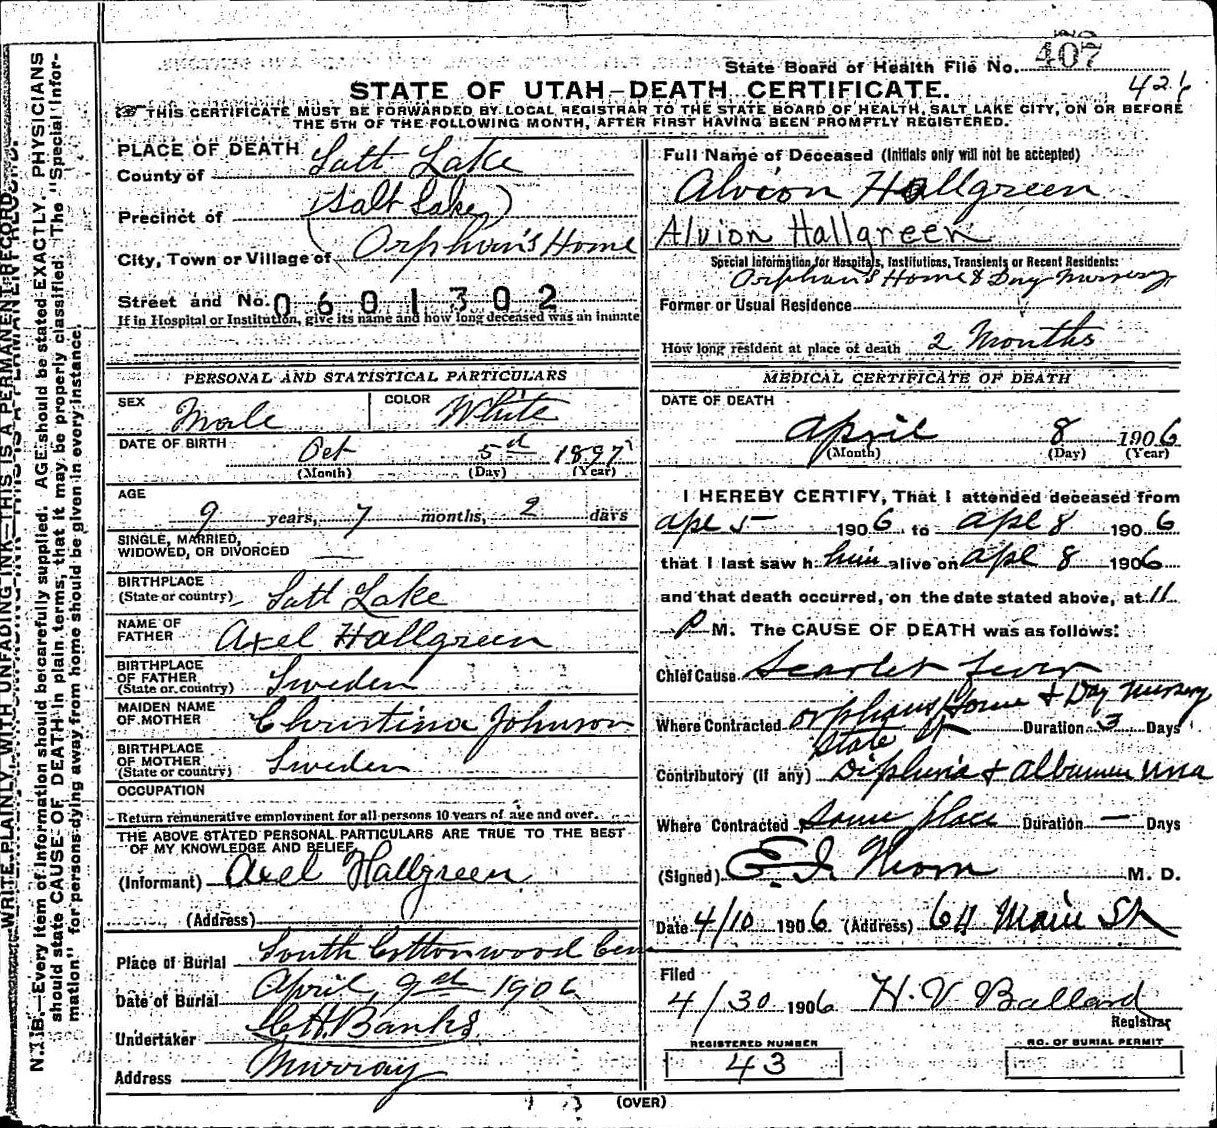 State Board of Health File No. 407
426
STATE OF UTAH—DEATH CERTIFICATE.
THIS CERTIFICATE MUST BE FORWARDED BY LOCAL REGISTRAR TO THE STATE BOARD OF HEALTH, SALT LAKE CITY, ON OR BEFORE
THE 5TH OF THE FOLLOWING MONTH, AFTER FIRST HAVING BEEN PROMPTLY REGISTERED.
PLACE OF DEATH
County of Salt Lake
Precinct of (Salt Lake)
City, Town or Village of Orphan's Home
Street and No. 0601302
If in Hospital or Institution, give its name and how long deceased was an inmate
PERSONAL AND STATISTICAL PARTICULARS
SEX Male COLOR White
DATE OF BIRTH Oct 5th 1897
(Month) (Day) (Year)
AGE
9 years, 7 months, 2 days
SINGLE, MARRIED,
WIDOWED, OR DIVORCED —
BIRTHPLACE
(State or country) Salt Lake
NAME OF
FATHER Axel Hallgreen
BIRTHPLACE
OF FATHER
(State or country) Sweden
MAIDEN NAME
OF MOTHER Christina Johnson
BIRTHPLACE
OF MOTHER
(State or country) Sweden
OCCUPATION
Return remunerative employment for all persons 10 years of age and over.
THE ABOVE STATED PERSONAL PARTICULARS ARE TRUE TO THE BEST
OF MY KNOWLEDGE AND BELIEF
(Informant) Axel Hallgreen
(Address)
Place of Burial South Cottonwood Cem
Date of Burial April, 9th 1906
Undertaker Banks
Address Murray
Full Name of Deceased (Initials only will not be accepted)
Alvion Hallgreen
Alvion Hallgreen
Special Information for Hospitals, Institutions, Transients or Recent Residents:
Orphan's Home & Day Nursery
Former or Usual Residence
How long resident at place of death 2 Months
MEDICAL CERTIFICATE OF DEATH
DATE OF DEATH
April 8 1906
(Month) (Day) (Year)
I HEREBY CERTIFY, That I attended deceased from
Apl 5 1906 to Apl 8 1906
that I last saw h him alive on Apl 8 1906
and that death occurred, on the date stated above, at 11
P M. The CAUSE OF DEATH was as follows:
Chief Cause Scarlet Fever
Where Contracted Orphans Home & Day Nursery
State St Duration 3 Days
Contributory (if any) Diptheria & Albumin uria
Where Contracted Same place Duration — Days
(Signed) M. D.
Date 4/10 1906 (Address) 64 Main St
Filed
4/30 1906 H. V Ballard
Registrar
REGISTERED NUMBER
43
NO. OF BURIAL PERMIT
(OVER)
WRITE PLAINLY, WITH UNFADING INK—THIS IS A PERMANENT RECORD.
N. B.—Every item of information should be carefully supplied. AGE should be stated EXACTLY. PHYSICIANS
should state CAUSE OF DEATH in plain terms, that it may be properly classified. The "Special Infor-
mation" for persons dying away from home should be given in every instance.